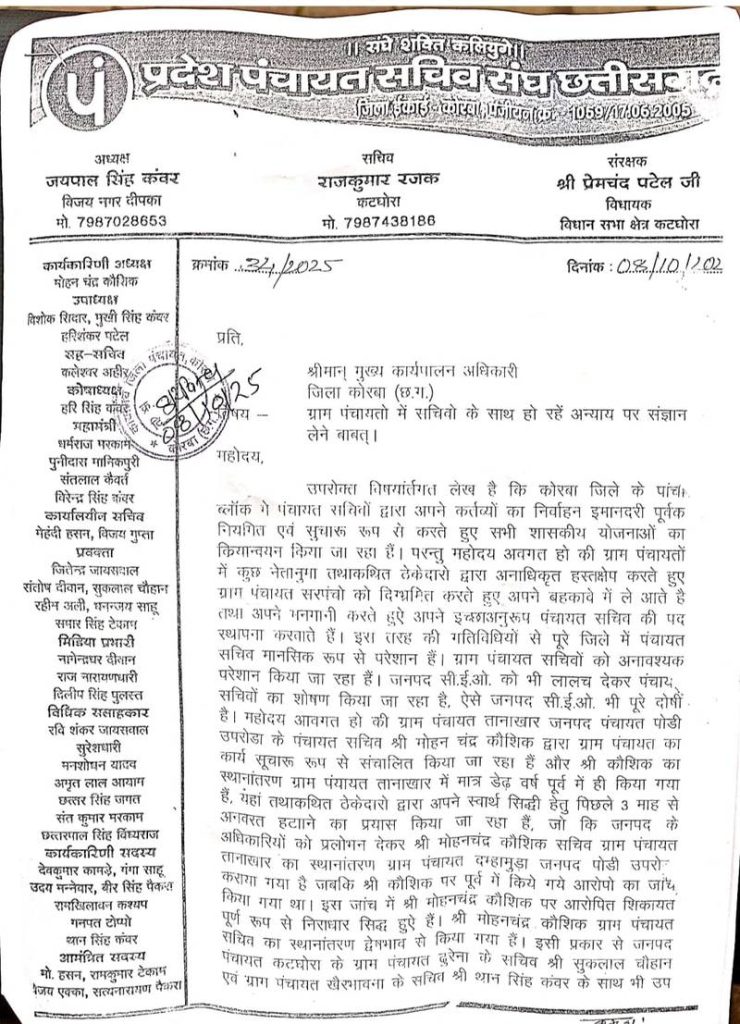 ।। संघे शक्ति कलियुगे।।
पं
प्रदेश पंचायत सचिव संघ छत्तीसगढ़
जिला ईकाई - कोरबा, पंजीयन क्र. - 1059/17.06.2005
अध्यक्ष
जयपाल सिंह कंवर
विजय नगर दीपका
मो. 7987028653
सचिव
राजकुमार रजक
कटघोरा
मो. 7987438186
संरक्षक
श्री प्रेमचंद पटेल जी
विधायक
विधान सभा क्षेत्र कटघोरा
कार्यकारिणी अध्यक्ष
मोहन चंद्र कौशिक
उपाध्यक्ष
विशोक सिदार, मुखी सिंह कंवर
हरिशंकर पटेल
सह-सचिव
कलेश्वर अहीर
कोषाध्यक्ष
हरि सिंह कंवर
महामंत्री
धर्मराज मरकाम
पुनीदास मानिकपुरी
संतलाल कैवर्त
विरेन्द्र सिंह कंवर
कार्यालयीन सचिव
मेहंदी हसन, विजय गुप्ता
प्रवक्ता
जितेन्द्र जायसवाल
संतोष दीवान, सुकलाल चौहान
रहीम अली, धनन्जय साहू
सिंह टेकाम
मिडिया प्रभारी
दीवान
राज नारायणधारी
दिलीप सिंह पुलस्त
विधिक सलाहकार
रवि शंकर जायसवाल
सुरेशधारी
मनशोधन यादव
अमृत लाल आयाम
छत्तर सिंह जगत
संत कुमार मरकाम
छत्तरपाल सिंह विंध्यराज
कार्यकारिणी सदस्य
देवकुमार कामड़े, गंगा साहू
उदय मन्नेवार, बीर सिंह पैकरा
रामखिलावन कश्यप
गनपत टोप्पो
थान सिंह कंवर
आमंत्रित सदस्य
मो. हसन, रामकुमार टेकाम
विजय एक्का, सत्यनारायण पैकरा
क्रमांक 34/2025
दिनांक : 08/10/202
08/10/25
प्रति,
श्रीमान् मुख्य कार्यपालन अधिकारी
जिला कोरबा (छ.ग.)
विषय – ग्राम पंचायतो में सचिवो के साथ हो रहें अन्याय पर संज्ञान
लेने बाबत्।
महोदय,
उपरोक्त विषयांर्तगत लेख है कि कोरबा जिले के पांचा
ब्लॉक में पंचायत सचिवों द्वारा अपने कर्तव्यों का निर्वाहन इमानदरी पूर्वक
नियमित एवं सुचारू रूप से करते हुए सभी शासकीय योजनाओं का
कियान्वयन किया जा रहा हैं। परन्तु महोदय अवगत हो की ग्राम पंचायतों
में कुछ नेतानुमा तथाकथित ठेकेदारो द्वारा अनाधिकृत हस्तक्षेप करते हुए
ग्राम पंचायत सरपंचो को दिग्भ्रमित करते हुए अपने बहकावे में ले आते है
तथा अपने मनमानी करते हुऐ अपने इच्छाअनुरूप पंचायत सचिव की पद
स्थापना करवाते हैं। इस तरह की गतिविधियों से पूरे जिले में पंचायत
सचिव मानसिक रूप से परेशान हैं। ग्राम पंचायत सचिवों को अनावश्यक
परेशान किया जा रहा हैं। जनपद सी.ई.ओ. को भी लालच देकर पंचाय
सचिवों का शोषण किया जा रहा है, ऐसे जनपद सी.ई.ओ. भी पूरे दोषी
है। महोदय आवगत हो की ग्राम पंचायत तानाखार जनपद पंचायत पोडी
उपरोडा के पंचायत सचिव श्री मोहन चंद्र कौशिक द्वारा ग्राम पंचायत का
कार्य सूचारू रूप से संचालित किया जा रहा हैं और श्री कौशिक का
स्थानांतरण ग्राम पंयायत तानाखार में मात्र डेढ़ वर्ष पूर्व में ही किया गया
हैं, यहां तथाकथित ठेकेदारो द्वारा अपने स्वार्थ सिद्धी हेतु पिछले 3 माह से
अनवरत हटााने का प्रयास किया जा रहा हैं, जो कि जनपद के
अधिकारियों को प्रलोभन देकर श्री मोहनचंद्र कौशिक सचिव ग्राम पंचायत
तानाखार का स्थानांतरण ग्राम पंचायत दम्हामुडा जनपद पोडी उपरो
कराया गया है जबकि श्री कौशिक पर पूर्व में किये गये आरोपो का जांच
किया गया था। इस जांच में श्री मोहनचंद्र कौशिक पर आरोपित शिकायत
पूर्ण रूप से निराधार सिद्ध हुऐ हैं। श्री मोहनचंद्र कौशिक ग्राम पंचायत
सचिव का स्थानांतरण द्वेषभाव से किया गया हैं। इसी प्रकार से जनपद
पंचायत कटघोरा के ग्राम पंचायत ढुरेना के सचिव श्री सुकलाल चौहान
एवं ग्राम पंचायत खैरभावना के सचिव श्री थान सिंह कंवर के साथ भी उप